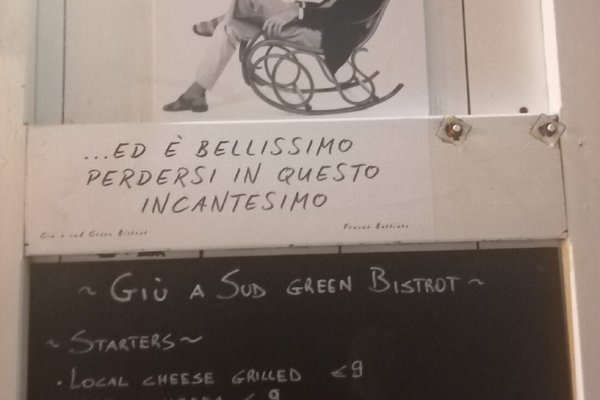 ...ED È BELLISSIMO
PERDERSI IN QUESTO
INCANTESIMO
Giù a sud Green Bistrot
Franco Battiato
~ GIÙ A SUD GREEN BISTROT ~
~ STARTERS ~
· LOCAL CHEESE GRILLED €9
€9